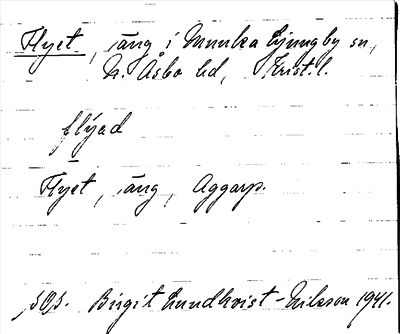 Flyet, äng i Munka Ljungby sn,
N. Åsbo hd, Krist. l.
flýad
Flyet, äng, Aggarp.
Birgit Lundkvist-Nilsson 1941.